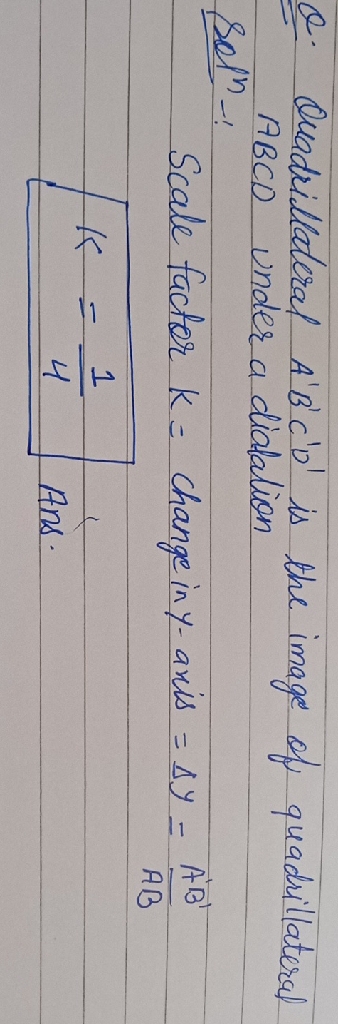 Q. Quadrillateral A'B'C'D' is the image of quadrillateral
ABCD under a dialation
Solⁿ -:
Scale factor K = change in y-axis = ΔY = A'B' / AB
K = 1/4 Ans.